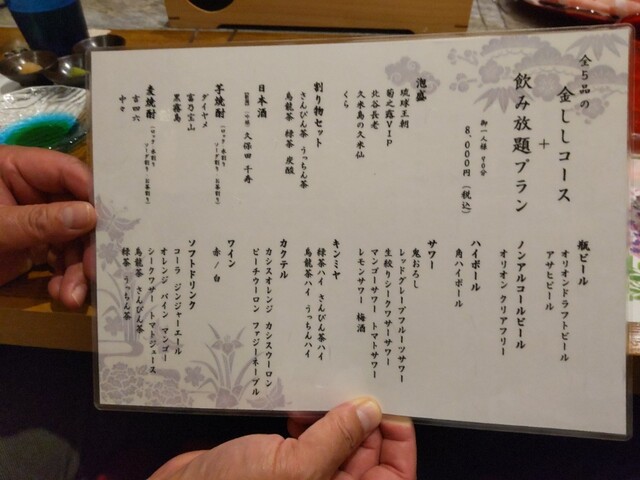 全5品の
金ししコース
+
飲み放題プラン
御一人様 90分
8,000円(税込)
泡盛
琉球王朝
菊之露VIP
北谷長老
久米島の久米仙
くら
割り物セット
さんぴん茶 うっちん茶
烏龍茶 緑茶 炭酸
日本酒
久保田 千寿
芋焼酎
ダイヤメ
富乃宝山
黒霧島
麦焼酎
吉四六
中々
瓶ビール
オリオンドラフトビール
アサヒビール
ノンアルコールビール
オリオン クリアフリー
ハイボール
角ハイボール
サワー
鬼おろし
レッドグレープフルーツサワー
生絞りシークワサーサワー
マンゴーサワー トマトサワー
レモンサワー 梅酒
キンミヤ
緑茶ハイ さんぴん茶ハイ
烏龍茶ハイ うっちんハイ
カクテル
カシスオレンジ カシスウーロン
ピーチウーロン ファジーネーブル
ワイン
赤/白
ソフトドリンク
コーラ ジンジャーエール
オレンジ パイン マンゴー
シークワサー トマトジュース
烏龍茶 さんぴん茶
緑茶 うっちん茶